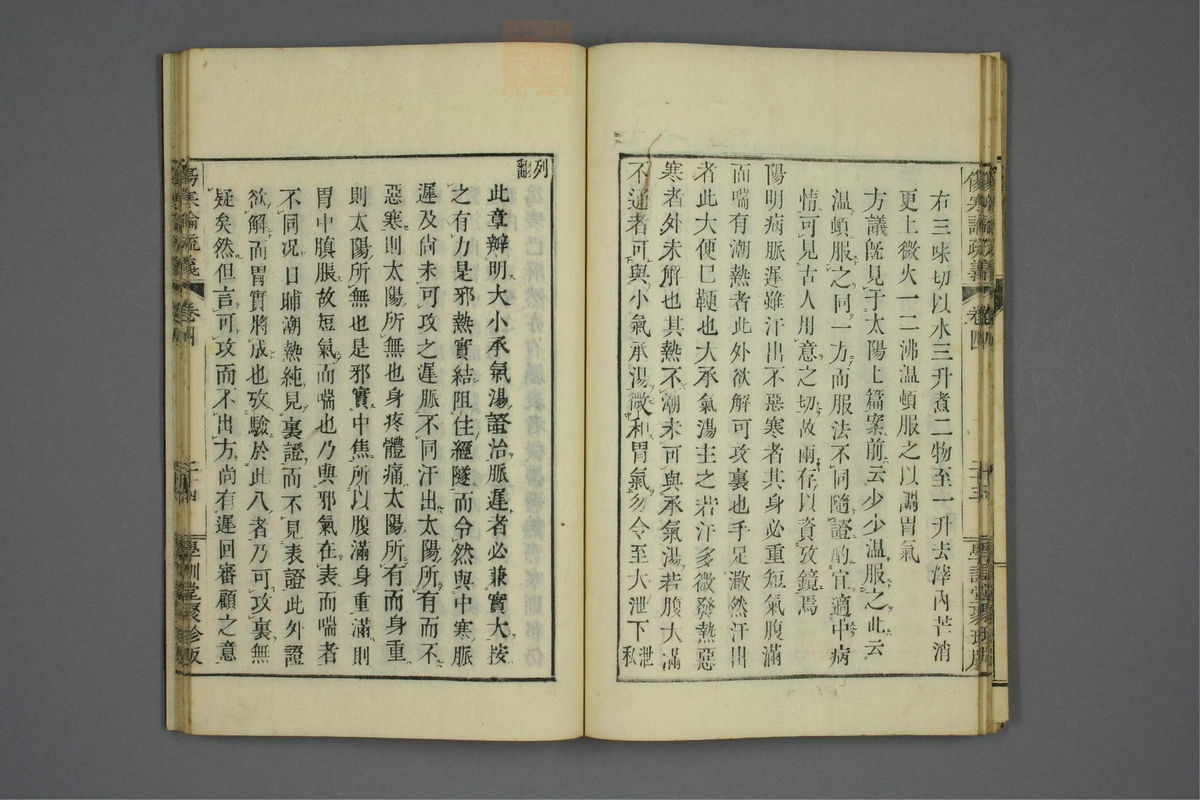 傷寒論疏義 卷四 二十三 學訓堂聚珍版
右三味切以水三升煮二物至一升去滓內芒消
更上微火一二沸溫頓服之以調胃氣
方議旣見于太陽上篇案前云少少溫服之此云
溫頓服之同一方而服法不同隨證酌宜適中病
情可見古人用意之切故兩存以資攷鏡焉
陽明病脈遲雖汗出不惡寒者其身必重短氣腹滿
而喘有潮熱者此外欲解可攻裏也手足濈然汗出
者此大便已鞕也大承氣湯主之若汗多微發熱惡
寒者外未解也其熱不潮未可與承氣湯若腹大滿
不通者可與小氣承湯微和胃氣勿令至大泄下 泄私
列翻
此章辨明大小承氣湯證治脈遲者必兼實大按
之有力是邪熱實結阻住經隧而令然與中寒脈
遲及尙未可攻之遲脈不同汗出太陽所有而不
惡寒則太陽所無也身疼體痛太陽所有而身重
則太陽所無也是邪實中焦所以腹滿身重滿則
胃中䐜脹故短氣而喘也乃與邪氣在表而喘者
不同况日晡潮熱純見裏證而不見表證此外證
欲解而胃實將成也攷驗於此八者乃可攻裏無
疑矣然但言可攻而不出方尙有遲回審顧之意
傷寒論疏義 卷四 二十四 學訓堂聚珍版